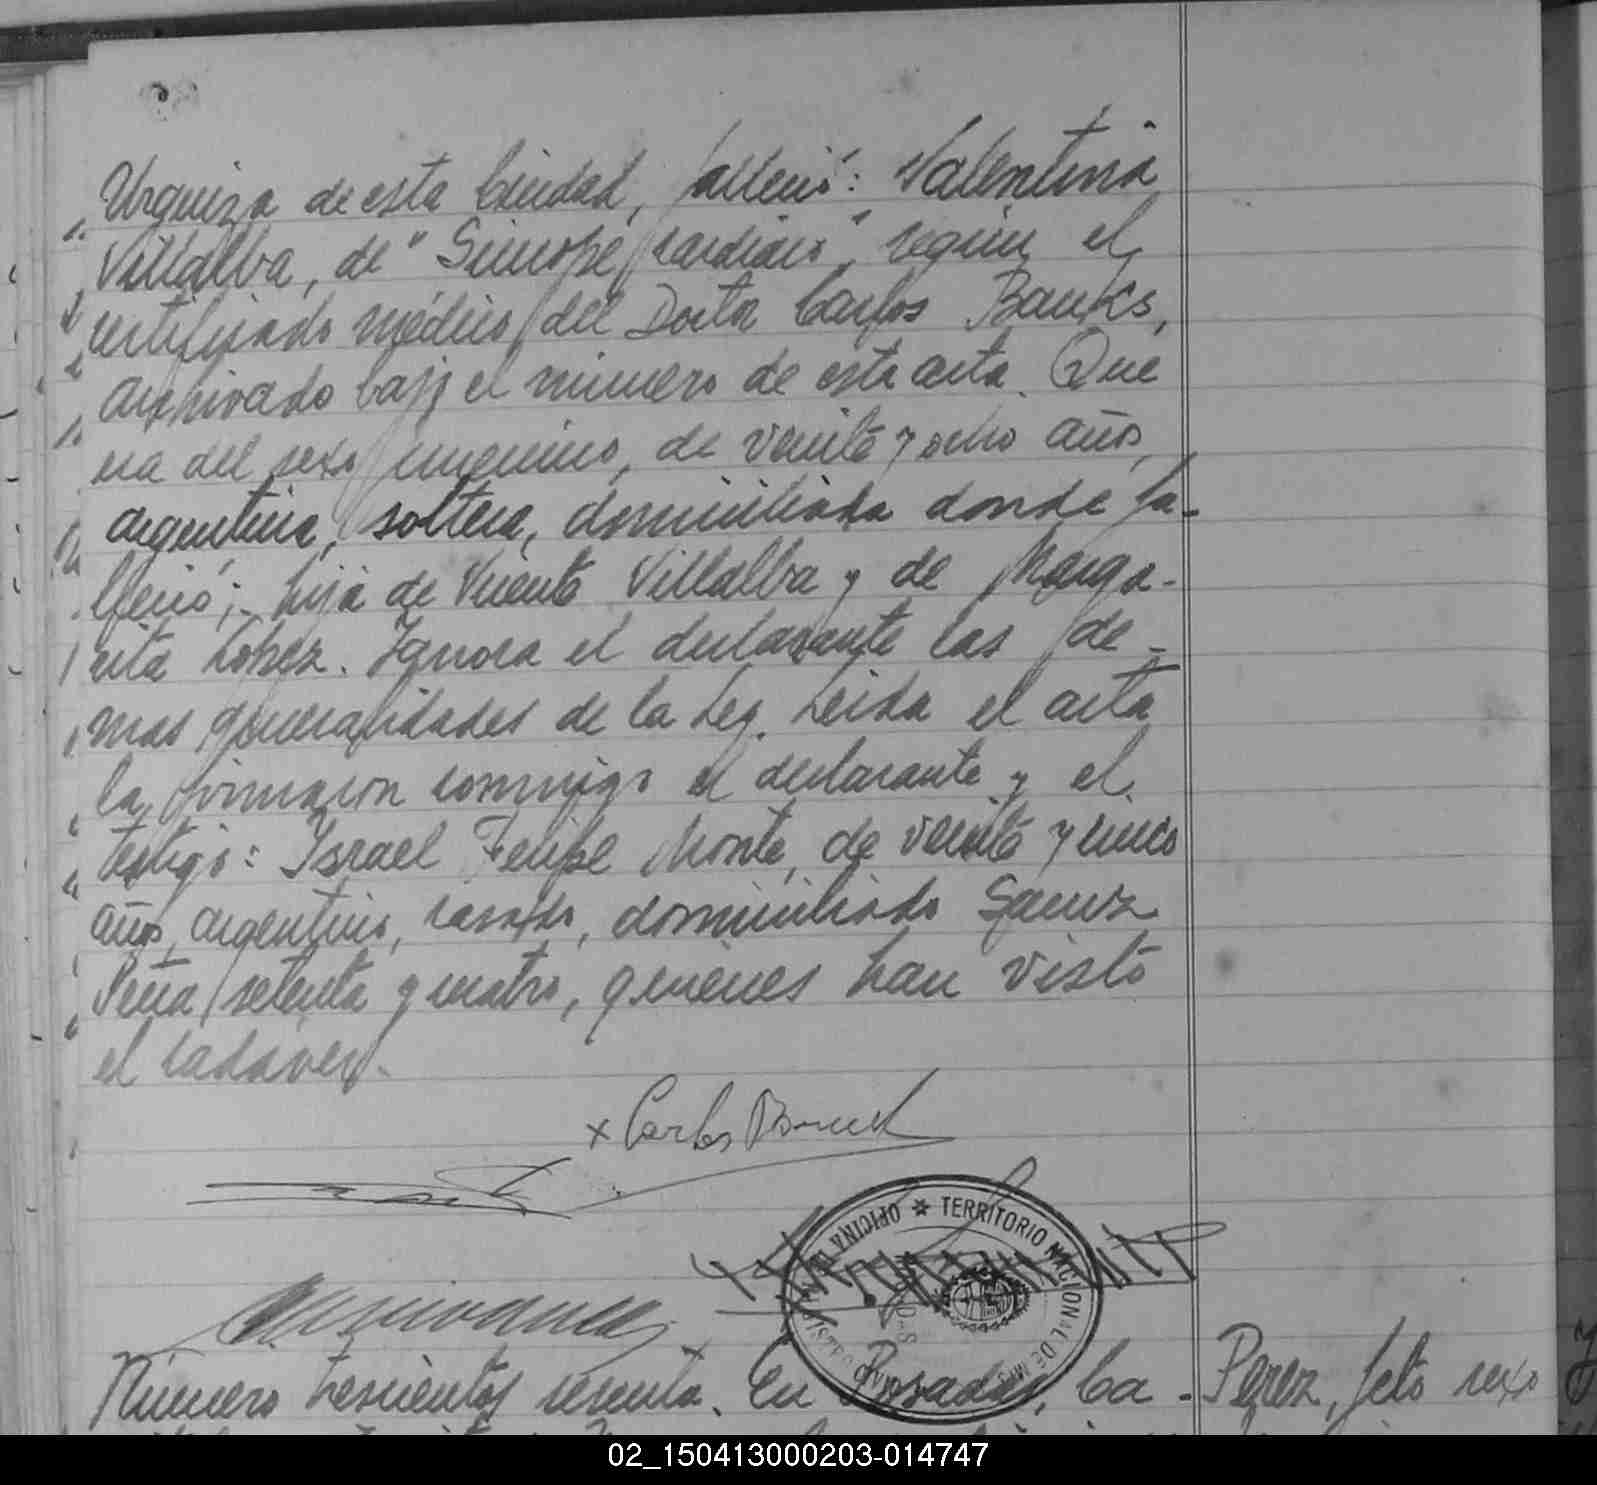 Urquiza de esta Ciudad, falleció: Valentina
Villalba, de "Sincope cardiaco", según el
certificado médico del Doctor Carlos Banks,
archivado bajo el número de esta acta. Que
era del sexo femenino, de veinte y ocho años,
argentina, soltera, domiciliada donde fa-
lleció; hija de Vicente Villalba y de Marga-
rita Lopez. Ignora el declarante las de-
mas generalidades de la Ley. Leida el acta
la firmaron conmigo el declarante y el
testigo: Israel Felipe Monte, de veinte y cinco
años, argentino, casado, domiciliado Saenz
Peña setenta y cuatro, quienes han visto
el cadaver.
x Carlos
OFICINA * TERRITORIO NACIONAL DE MIS
Número trescientos sesenta. En Posadas, Ca-
Perez, feto sexo
02_150413000203-014747